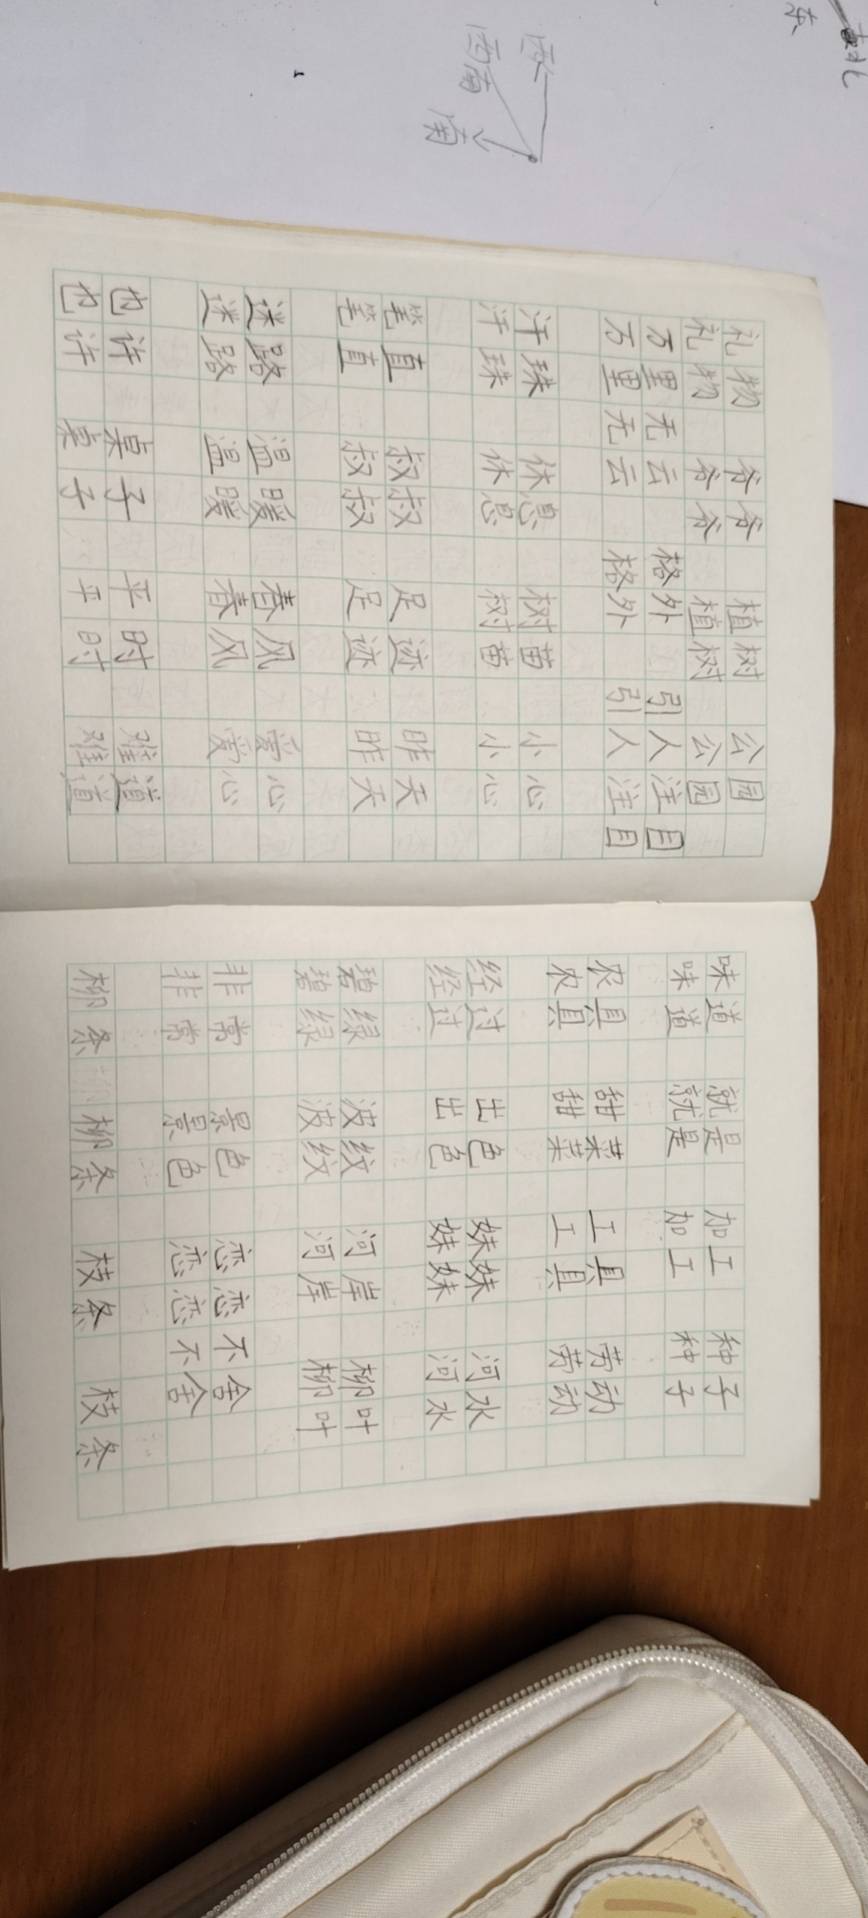 北
东
西
西南
南
礼物 爷爷 植树 公园
礼物 爷爷 植树 公园
万里无云 格外 引人注目
万里无云 格外 引人注目
汗珠 休息 树苗 小心
汗珠 休息 树苗 小心
笔直 叔叔 足迹 昨天
笔直 叔叔 足迹 昨天
迷路 温暖 春风 爱心
迷路 温暖 春风 爱心
也许 桌子 平时 难道
也许 桌子 平时 难道
味道 就是 加工 种子
味道 就是 加工 种子
农具 甜菜 工具 劳动
农具 甜菜 工具 劳动
经过 出色 妹妹 河水
经过 出色 妹妹 河水
碧绿 波纹 河岸 柳叶
碧绿 波纹 河岸 柳叶
非常 景色 恋恋不舍
非常 景色 恋恋不舍
柳条 柳条 枝条 枝条